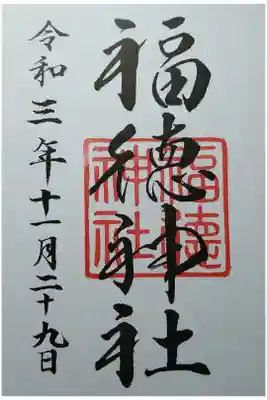 福徳神社
福徳
神社
令和三年十一月二十九日